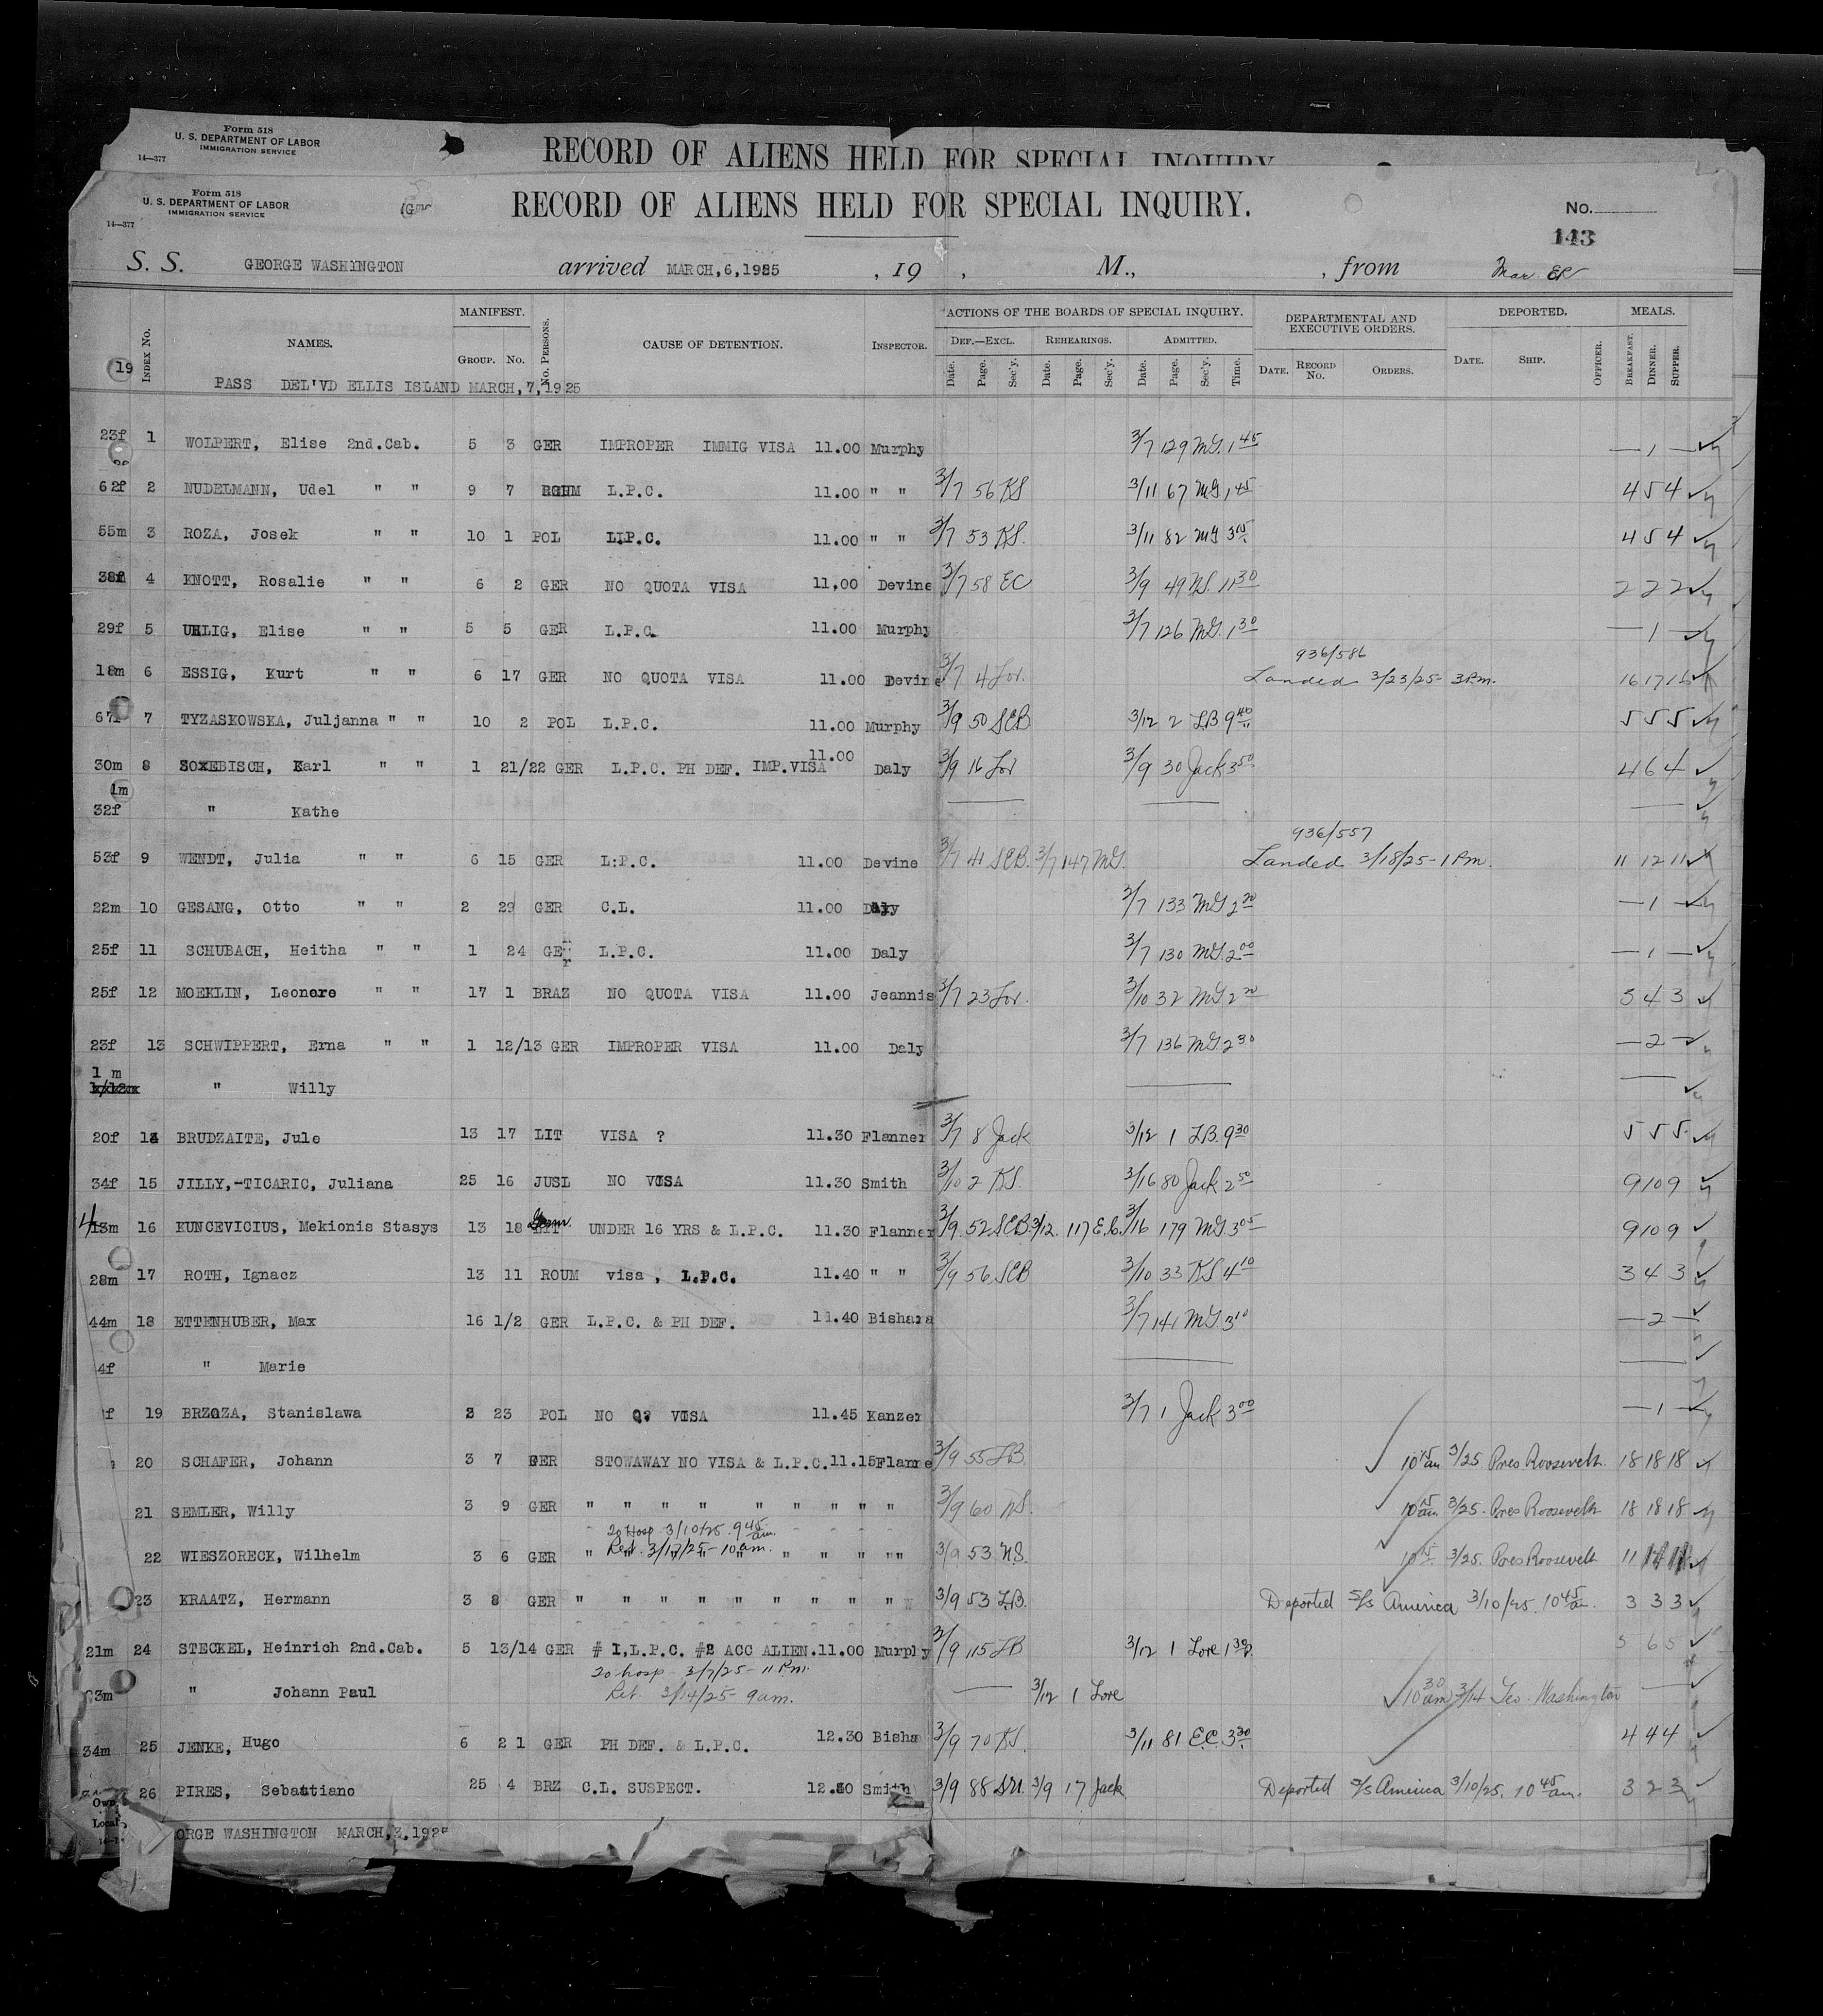 Form 518
U. S. DEPARTMENT OF LABOR
IMMIGRATION SERVICE
14—377
RECORD OF ALIENS HELD FOR SPECIAL INQUIRY
Form 518
U. S. DEPARTMENT OF LABOR
IMMIGRATION SERVICE
14—377
RECORD OF ALIENS HELD FOR SPECIAL INQUIRY.
No.
143
S. S. GEORGE WASHINGTON arrived MARCH,6,1925 , 19 , M., , from Mar.
INDEX NO. NAMES. MANIFEST. GROUP. NO. NO. PERSONS. CAUSE OF DETENTION. INSPECTOR. ACTIONS OF THE BOARDS OF SPECIAL INQUIRY. DEF.—EXCL. REHEARINGS. ADMITTED. DEPARTMENTAL AND EXECUTIVE ORDERS. DEPORTED. MEALS.
Date. Page. Sec'y. Date. Page. Sec'y. Date. Page. Sec'y. Time. DATE. RECORD NO. ORDERS. DATE. SHIP. OFFICER. BREAKFAST. DINNER. SUPPER.
19 PASS DEL'VD ELLIS ISLAND MARCH,7,1925
23f 1 WOLPERT, Elise 2nd.Cab. 5 3 GER IMPROPER IMMIG VISA 11.00 Murphy 3/7 129 MG. 1 45 — 1 —
62f 2 NUDELMANN, Udel " " 9 7 L.P.C. 11.00 " " 3/7 56 KS 3/11 67 MG 1 45 4 5 4
55m 3 ROZA, Josek " " 10 1 POL L.P.C. 11.00 " " 3/7 53 KS. 3/11 82 MG 3 15 4 5 4
38f 4 KNOTT, Rosalie " " 6 2 GER NO QUOTA VISA 11.00 Devine 3/7 58 EC 3/9 49 NS. 11 30 2 2 2
29f 5 UHLIG, Elise " " 5 5 GER L.P.C. 11.00 Murphy 3/7 126 MG. 1 30 — 1 —
936/586
18m 6 ESSIG, Kurt " " 6 17 GER NO QUOTA VISA 11.00 Devine 3/7 4 Lor. Landed 3/23/25- 3 P.m. 16 17 16
67f 7 TYZASKOWSKA, Juljanna " " 10 2 POL L.P.C. 11.00 Murphy 3/9 50 SEB 3/12 2 LB 9 40 5 5 5
30m 8 SOXEBISCH, Karl " " 1 21/22 GER L.P.C. PH DEF. IMP.VISA 11.00 Daly 3/9 16 Lor 3/9 30 Jack 3 50 4 6 4
1m
32f " Kathe
936/557
53f 9 WENDT, Julia " " 6 15 GER L:P.C. 11.00 Devine 3/7 41 SEB. 3/7 147 MG. Landed 3/18/25-1 P.m. 11 12 11
22m 10 GESANG, Otto " " 2 29 GER C.L. 11.00 Daly 3/7 133 MG 2 20 — 1 —
25f 11 SCHUBACH, Heitha " " 1 24 GEr L.P.C. 11.00 Daly 3/7 130 MG. 2 00 — 1 —
25f 12 MOEKLIN, Leonore " " 17 1 BRAZ NO QUOTA VISA 11.00 Jeannis 3/7 23 Lor. 3/10 32 MG. 2 20 3 4 3
23f 13 SCHWIPPERT, Erna " " 1 12/13 GER IMPROPER VISA 11.00 Daly 3/7 136 MG 2 30 — 2 —
1 m
" Willy
20f 14 BRUDZAITE, Jule 13 17 LIT VISA ? 11.30 Flanner 3/7 8 Jack 3/12 1 LB. 9 30 5 5 5
34f 15 JILLY,-TICARIC, Juliana 25 16 JUSL NO VISA 11.30 Smith 3/10 2 KS. 3/16 80 Jack 2 50 9 10 9
13m 16 KUNCEVICIUS, Mekionis Stasys 13 18 UNDER 16 YRS & L.P.C. 11.30 Flanner 3/9. 52 SEB. 3/12. 117 E.C. 3/16 179 MG. 3 05 9 10 9
28m 17 ROTH, Ignacz 13 11 ROUM visa , L.P.C. 11.40 " " 3/9 56 SEB 3/10 33 KS 4 10 3 4 3
44m 18 ETTENHUBER, Max 16 1/2 GER L.P.C. & PH DEF. 11.40 Bishara 3/7 141 MG. 3 10 — 2 —
4f " Marie
f 19 BRZOZA, Stanislawa 23 POL NO Q? VISA 11.45 Kanzer 3/7 1 Jack 3 00 — 1 —
20 SCHAFER, Johann 3 7 GER STOWAWAY NO VISA & L.P.C. 11.15 Flanne 3/9 55 LB 10 15 am 3/25. Pres Roosevelt. 18 18 18
21 SEMLER, Willy 3 9 GER " " " " " " " " " 3/9 60 NS. 10 15 am 3/25. Pres Roosevelt 18 18 18
To Hosp 3/10/25. 9 45 am.
Ret. 3/17/25-10 am.
22 WIESZORECK, Wilhelm 3 6 GER " " " " " " " " " 3/9. 53 N.S. 10 15 3/25. Pres Roosevelt 11
23 KRAATZ, Hermann 3 8 GER " " " " " " " " " 3/9 53 LB. Deported S/S America 3/10/25. 10 45 am. 3 3 3
21m 24 STECKEL, Heinrich 2nd.Cab. 5 13/14 GER # 1,L.P.C. #2 ACC ALIEN. 11.00 Murphy 3/9 115 LB 3/12 1 Lore 1 30 5 6 5
To hosp - 3/7/25 - 11 P.m.
Ret. 3/14/25- 9 am.
3m " Johann Paul 3/12 1 Lore 10 30 am 3/14 Geo. Washington
34m 25 JENKE, Hugo 6 21 GER PH DEF. & L.P.C. 12.30 Bisha 3/9 70 KS. 3/11 81 E.C. 3 30 4 4 4
26 PIRES, Sebastiano 25 4 BRZ C.L. SUSPECT. 12.30 Smith 3/9 88 3/9 17 Jack Deported S/S America 3/10/25. 10 45 am. 3 2 3
Own
Local
ORGE WASHINGTON MARCH,3,1925